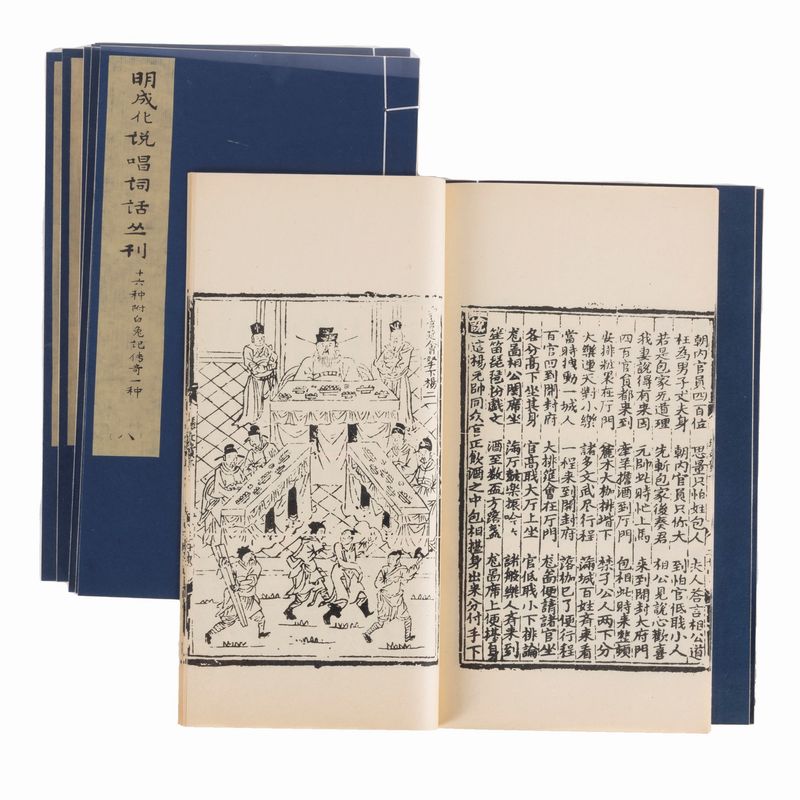 明成化说唱词话丛刊
十六种附白兔记传奇一种
八
朝内官員四百位 思量只怕姓包人 夫人荅言相公道
枉為男子丈夫身 朝内官員只你大 到怕官低職小人
若是包家无道理 先斬包家後奏君 相公見說心歡喜
我妻說得有來因 元帥此時忙上馬 來到開封大府門
四百官員都來到 牽羊擔酒到厅門 包相此時來整頓
安排果在厅門 麄木大枷排堦下 子公人两下分
大樂連天對小樂 諸多文武尽行程 滿城百姓斉來看
當時拽動一城人 一程來到開封府 落枷已了便行程
百官四到開封府 大排筵會在厅門 尨啚便請諸官坐
各分高下坐其身 官高職大厅上坐 官低職小下排論
尨啚相公関席坐 滿厅皷樂振 諸般樂人斉來到
笙笛琵琶扮戲文 酒至数盃方落盏 尨啚席上便抬身
說 這楊元帥同众官正飲酒之中包相擡身出來分付手下